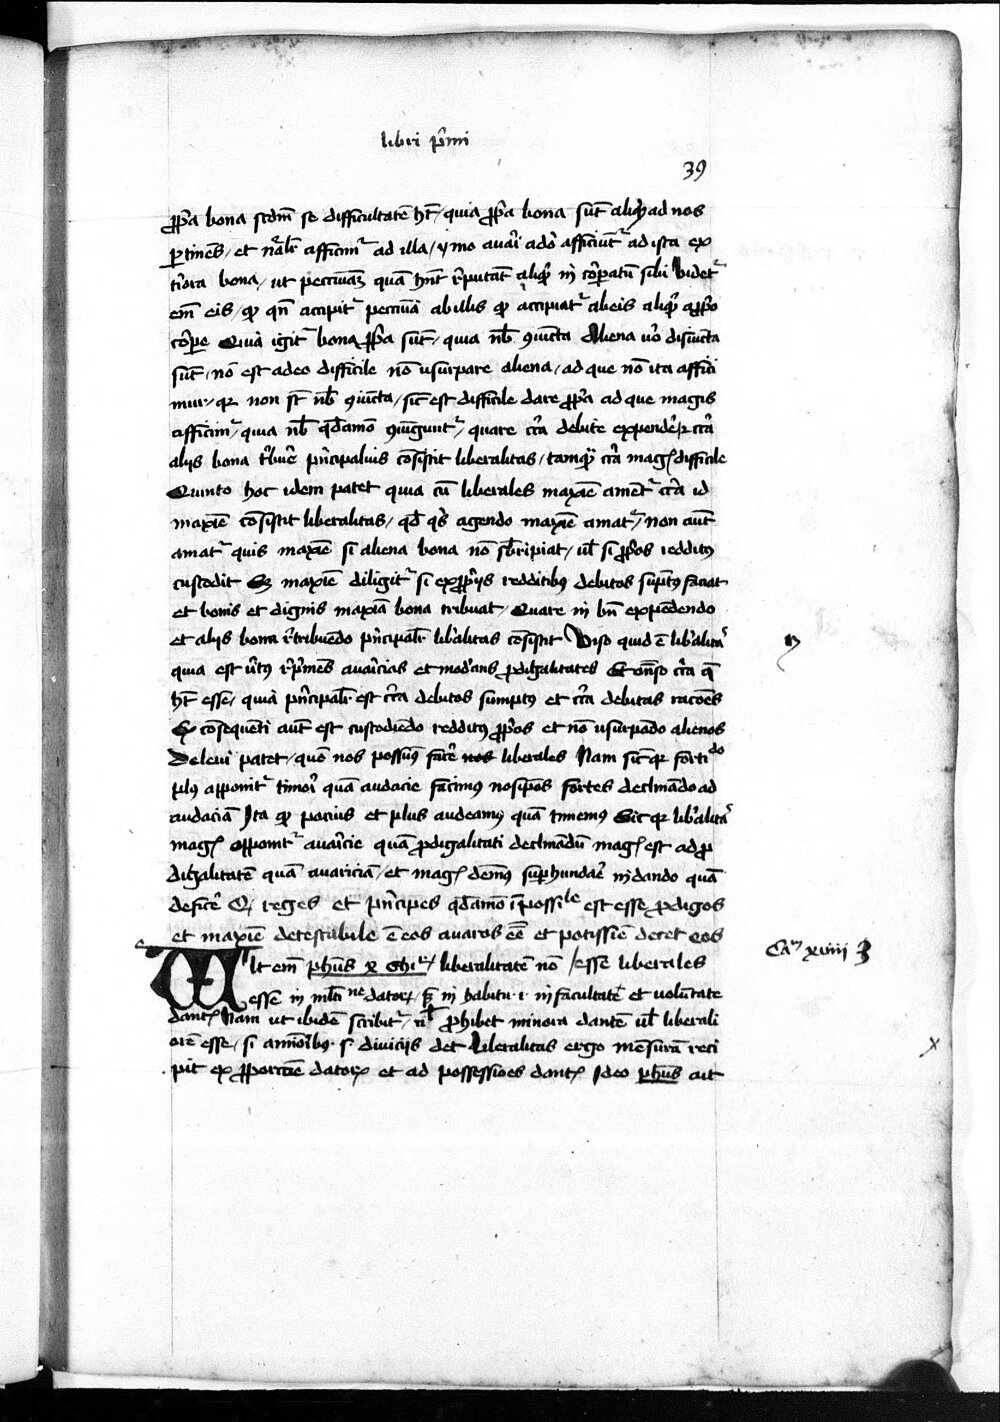 libri pͥmi
39
ꝓpͥa bona scdm̄ se difficultatē hn̄t / quia ꝓpͥa bona sūt aliqͥd ad nos
ꝑtinēs / et nālr̄ afficimͬ ad illa / ymo auari adō afficiūtͬ ad ista ex
tiͦora bona / ut pecuniā quā hn̄t reputāt aliqͥd in cōꝑatū sibi Videtͬ
em̄ eis / qͫ qn̄ accipitͬ pecunia ab illis qͫ accipiatͬ ab eis aliqͥd a ꝓpͦo
corꝑe Quia igitͬ bona ꝓpͥa sūt / quia nob̄ ꝯiūcta Aliena vͦo disiūcta
sūt / nō est adeo difficile nō usurpare aliena / ad que nō ita affici
mur / qͥ non st̄ nob̄ ꝯiūcta / sic est difficile dare ꝓpͥa ad que magis
afficimͬ / quia nob̄ qͦdāmō ꝯiūguntͬ / quare cͥca debite expendeͤ et cͥca
alijs bona tͥbueͤ pͥncipalius cōsistit liberalitas / tamqͣ cͥca magͥ difficile
Quinto hoc idem patet quia cū liberales maxīe amentͬ cͥca id
maxīe cōsistit liberalitas / qd̄ qͥs agendo maxīe amatͬ / non aūt
amatͬ quis maxīe si aliena bona nō surripiat / ul̄ si ꝓpͥos redditꝰ
custodit Sꝫ maxīe diligitͬ si ex ꝓpͥijs redditibꝰ debitos sumptꝰ faciat
et bonis et dignis maxīa bona tribuat / Quare in bn̄ expēdendo
et alijs bona retribuēdo pͥncipalr̄ libͣalitas cōsistit Viso quid ē libͣalitͣ
quia est uͥtꝰ repͥmēs auaricias et modͣans ꝓdigalitates Et onso cͥca qͣ
ht̄ esse / quia pͥncipalr̄ est cͥca debitos sumptꝰ et cͥca debitas racōēs
Ex cōsequēti aūt est custodiēdo redditꝰ ꝓpͥos et nō usurpādo alienos
De leui patet / quō nos possumꝰ faceͤ nos liberales Nam sic qͥ forti do
plus apponitͬ timoͥ quā audacie facimus nosip̄os fortes declinādo ad
audaciā Ita qͫ pocius et plus audeamꝰ quā timemꝰ Sic qͥ libͣalitͣ
magͥ opponitͬ auaricie quā ꝓdigalitati declinādū magͥ est ad ꝓ
digalitatē quā auariciā / et magͥ demꝰ suꝑhabundaͤ in dando quā
deficeͤ Qͥ reges et pͥncipes qͦdāmō īpossi le est esse ꝓdigos
et maxīe detestabile ē eos auaros eē et potissīe decet eos
Cāͫ xviiij
Ult em̄ ph̄us 4 Ethi liberalitatē nō esse liberales
esse in ml̄ti ne datoꝝ / sꝫ in habitu · i · in facultate et volūtate
dantͥ Nam ut ibidē scribitͬ / nl̄ ꝓhibet minora dantē ul̄ liberali
orē esse / si a minoribꝰ · s · diuicijs det Liberalitas ergo mēsurā reci
pit ex ꝓporcōe datoꝝ et ad possessiones dantͥ Ideo ph̄us ait
x